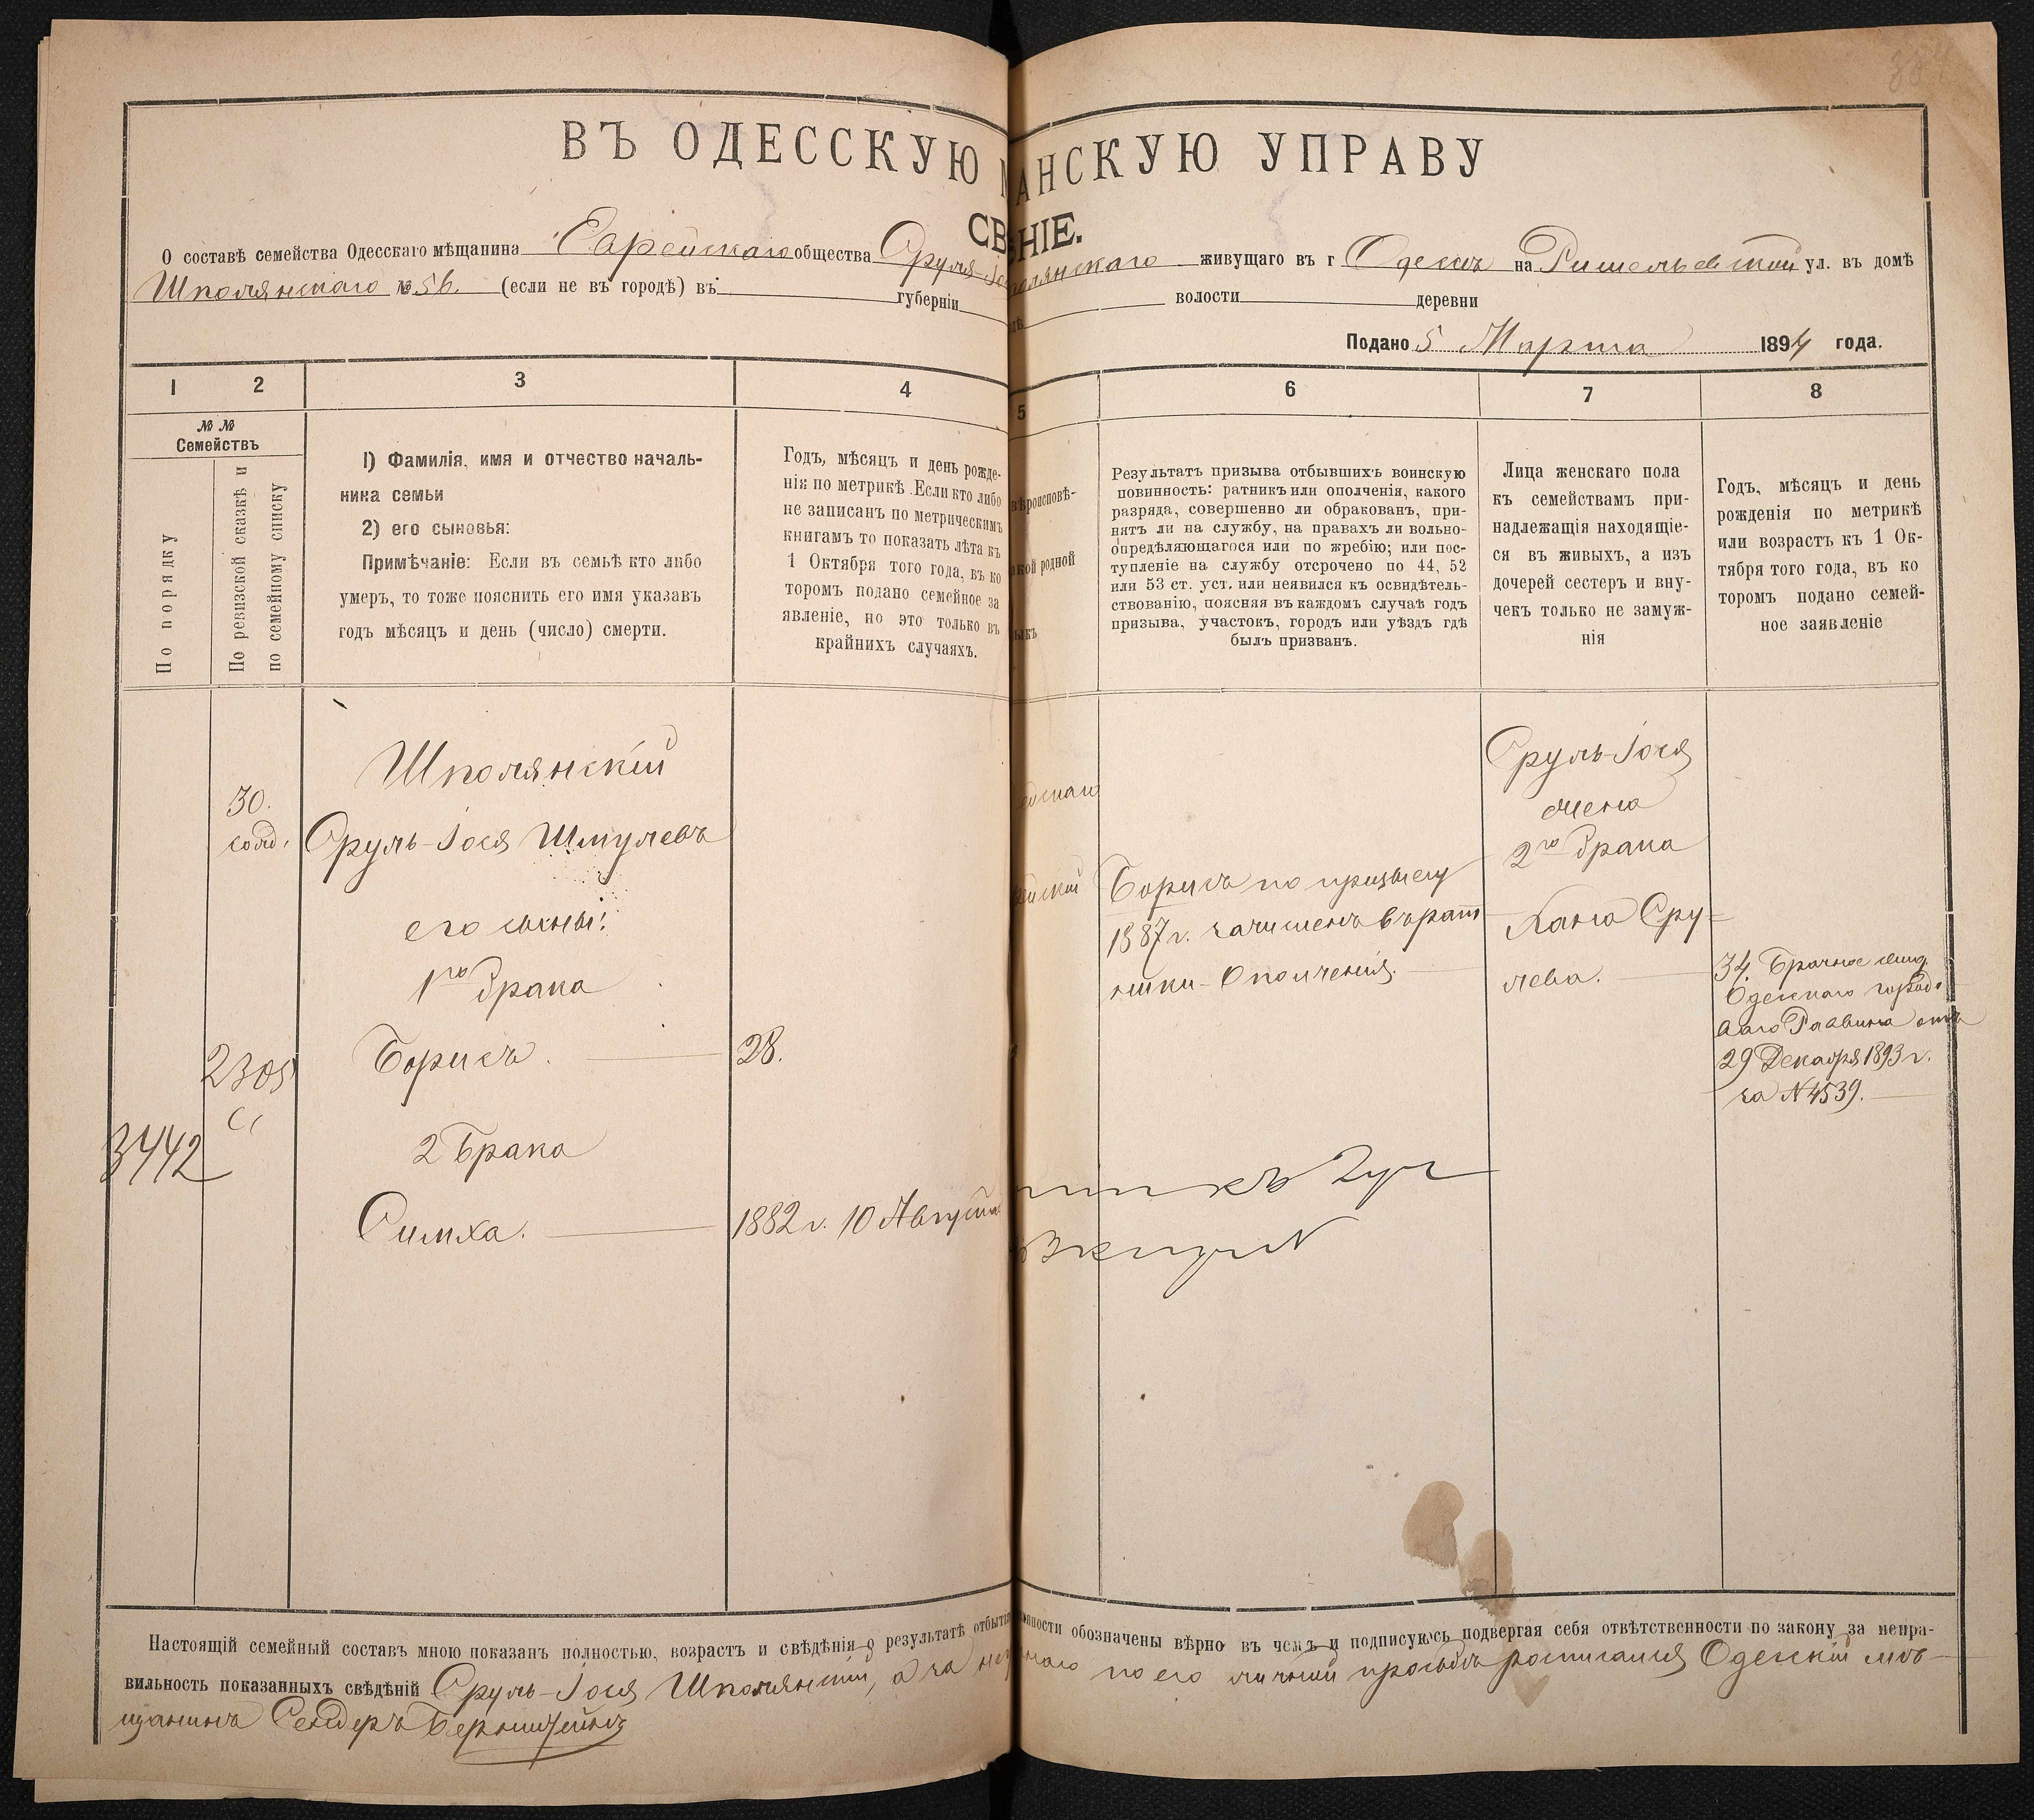 ВЪ ОДЕССКУЮ АНСКУЮ УПРАВУ
СВ НІЕ.
О составѣ семейства Одесскаго мѣщанина Еврейскаго общества Сруля-Іос полянскаго живущаго въ г Одессѣ на Ришельевской ул. въ домѣ
Шполянскаго № 56. (если не въ городѣ) въ губерніи волости деревни
Подано 5 Марта 1894 года.
1 2 3 4 5 6 7 8
№ №
Семействъ
По порядку
По ревизской сказкѣ и
по семейному списку
1) Фамилія, имя и отчество началь-
ника семьи
2) его сыновья:
Примѣчаніе: Если въ семьѣ кто либо
умеръ, то тоже пояснить его имя указавъ
годъ мѣсяцъ и день (число) смерти.
Годъ, мѣсяцъ и день рожде-
нія по метрикѣ. Если кто либо
не записанъ по метрическимъ
книгамъ то показать лѣта къ
1 Октября того года, въ ко
торомъ подано семейное за
явленіе, но это только въ
крайнихъ случаяхъ.
вѣроисповѣ-
кой родной
зыкъ
Результатъ призыва отбывшихъ воинскую
повинность: ратникъ или ополченія, какого
разряда, совершенно ли обракованъ, при-
нятъ ли на службу, на правахъ ли вольно-
опредѣляющагося или по жребію; или пос-
тупленіе на службу отсрочено по 44, 52
или 53 ст. уст. или неявился къ освидѣтель-
ствованію, поясняя въ каждомъ случаѣ годъ
призыва, участокъ, городъ или уѣздъ гдѣ
былъ призванъ.
Лица женскаго пола
къ семействамъ при-
надлежащія находящіе-
ся въ живыхъ, а изъ
дочерей сестеръ и вну-
чекъ только не замуж-
нія
Годъ, мѣсяцъ и день
рожденія по метрикѣ
или возрастъ къ 1 Ок-
тября того года, въ ко
торомъ подано семей-
ное заявленіе
30.
Шполянскій
Сруль-Іося Шмулевъ
его сыны:
1го брака
Борисъ. 28.
3442
2 брака
Симха. 1882 г. 10 Августа
Борисъ по призыву
1887 г. зачисленъ въ рат
ники Ополченія.
Сруль-Іося
жена
2го брака
Хана Сру-
лева.
34. Брачное свид.
Одесскаго город-
аго Раввина отъ
29 Декабря 1893 г.
за N 4539.
Настоящій семейный составъ мною показанъ полностью, возрастъ и свѣдѣнія о результатѣ отбыті нности обозначены вѣрно въ чемъ и подписуюсь подвергая себя отвѣтственности по закону за непра-
вильность показанныхъ свѣдѣній Сруль-Іося Шполянскій, а за не наго по его личной просьбѣ росписался Одесскій мѣ-
щанинъ Сендеръ Бернштейнъ